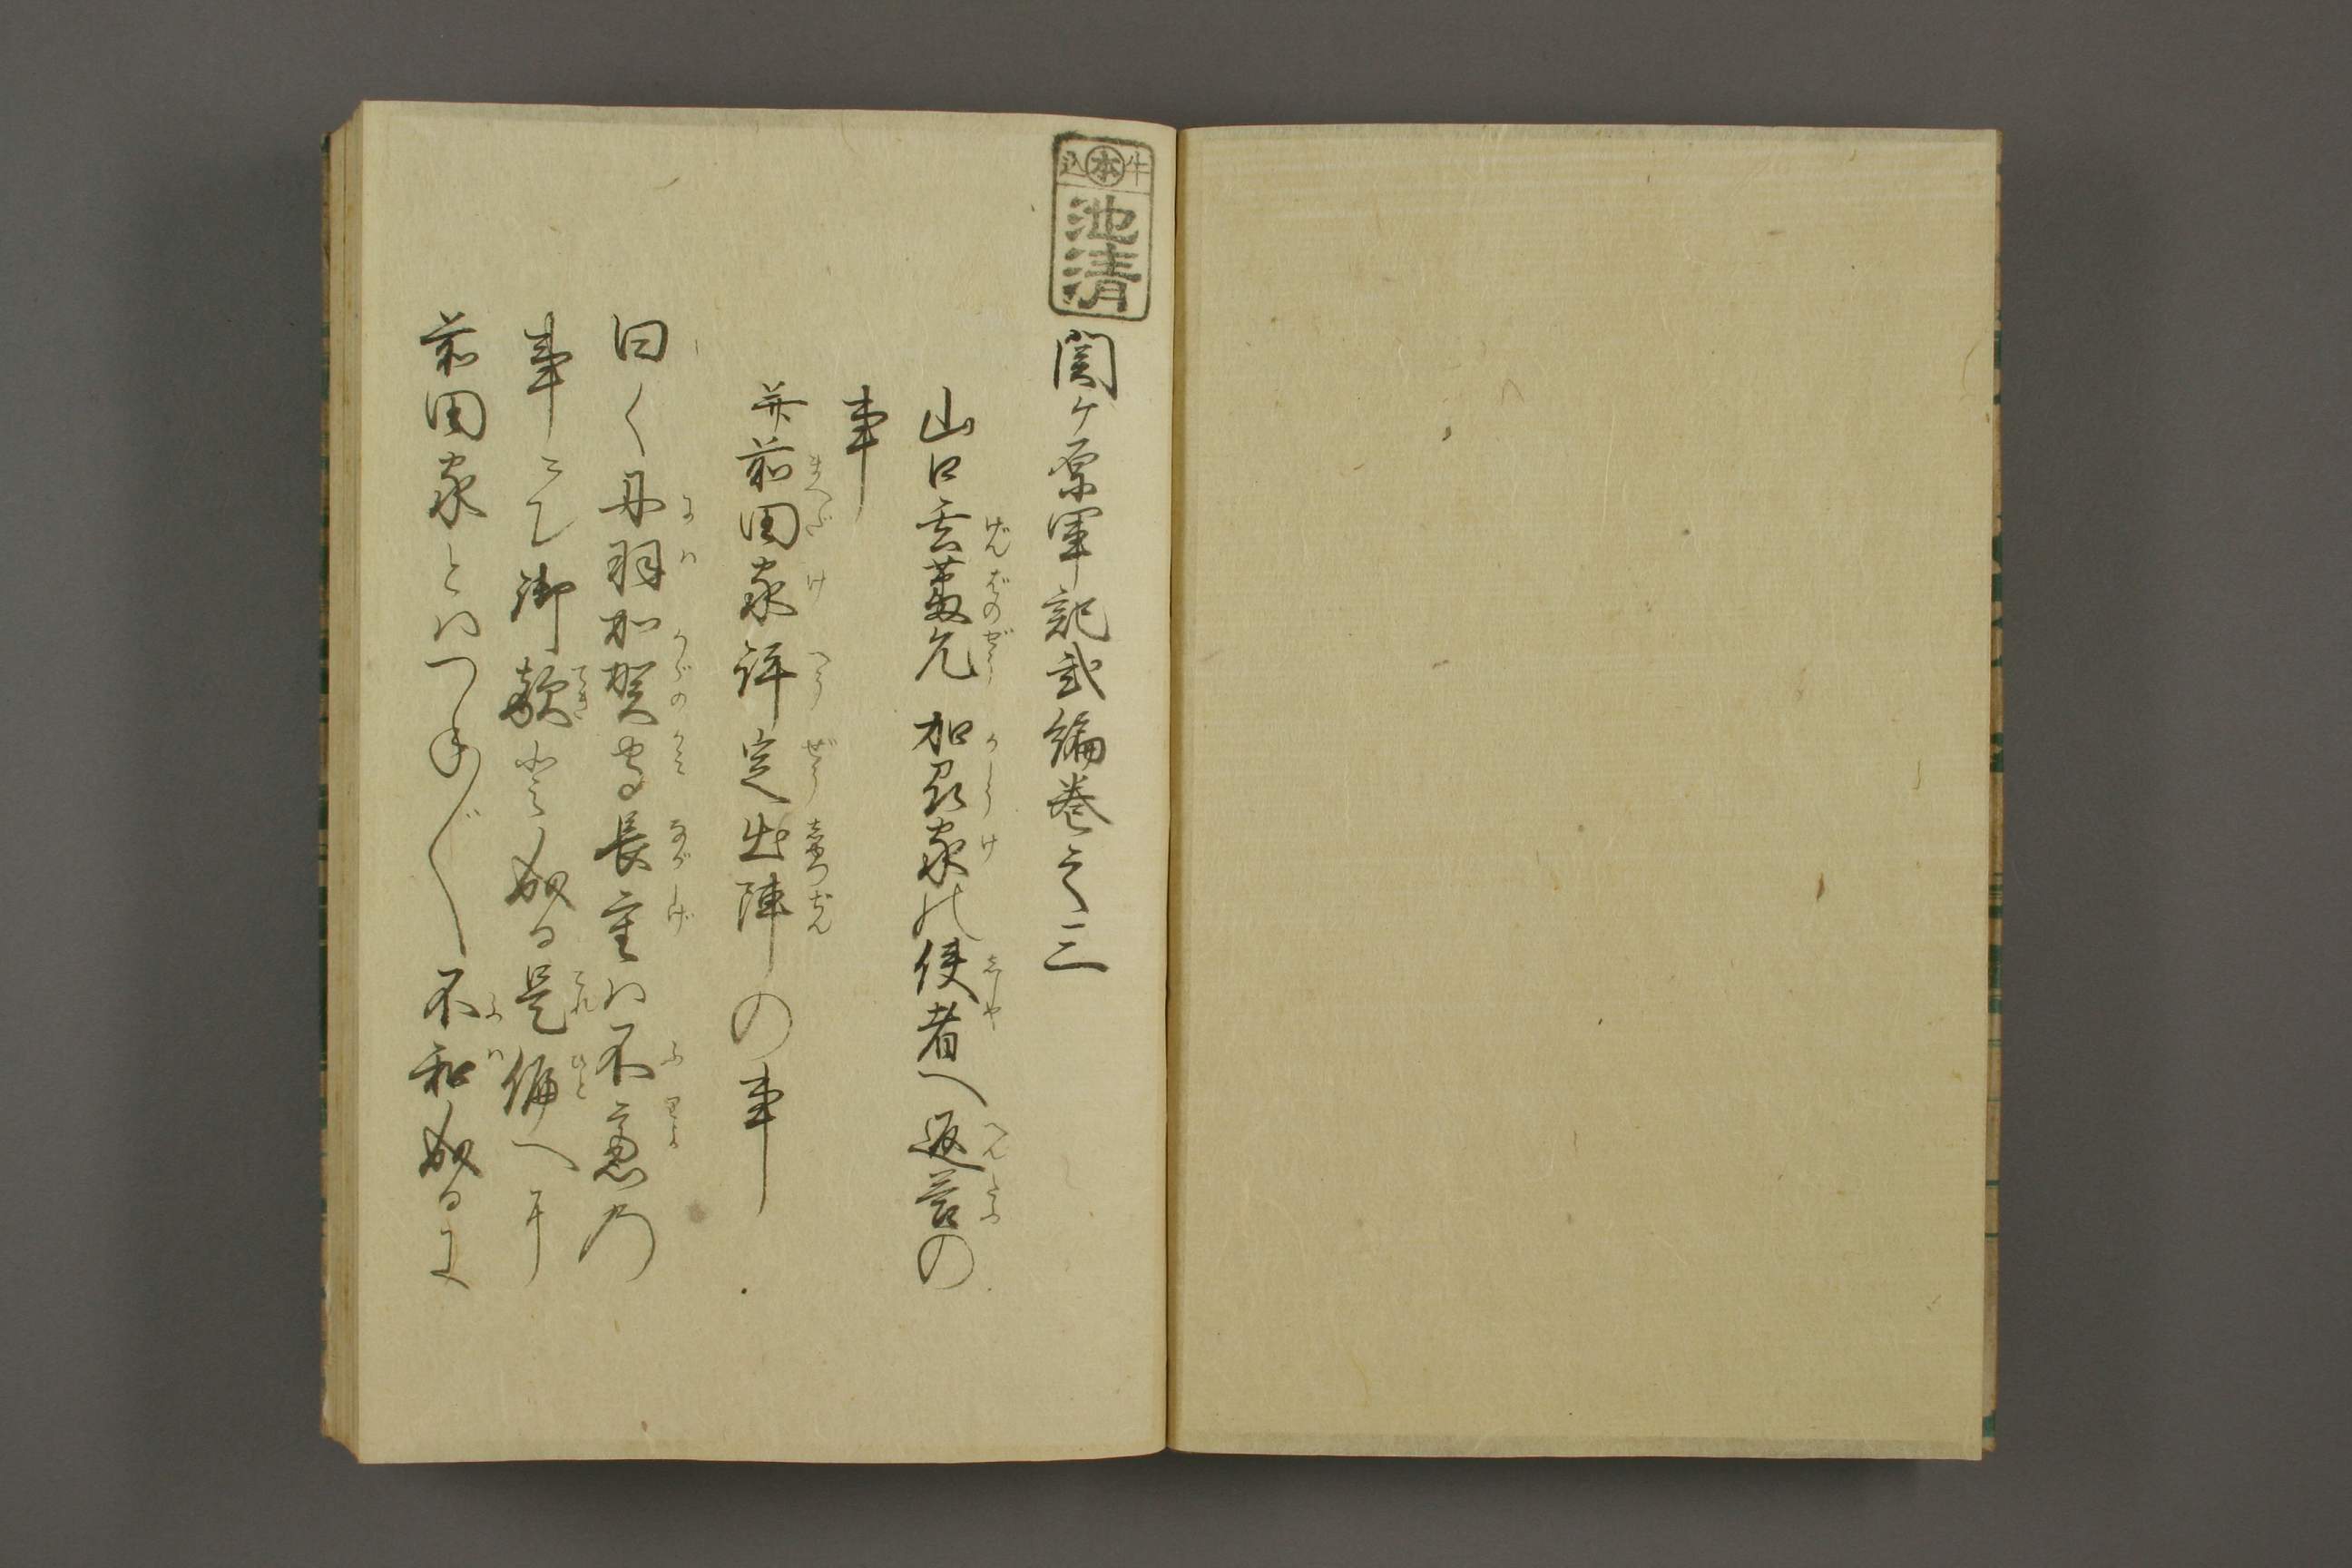 牛 本 込
池清
関ケ原軍記弐編巻之三
山口玄蕃允加州家の使者へ返答の
事
并前田家評定出陣の事
曰く丹羽加賀守長重ハ不意乃
事にて御敵となる是偏へに
前田家とハつね〴〵不和なるに